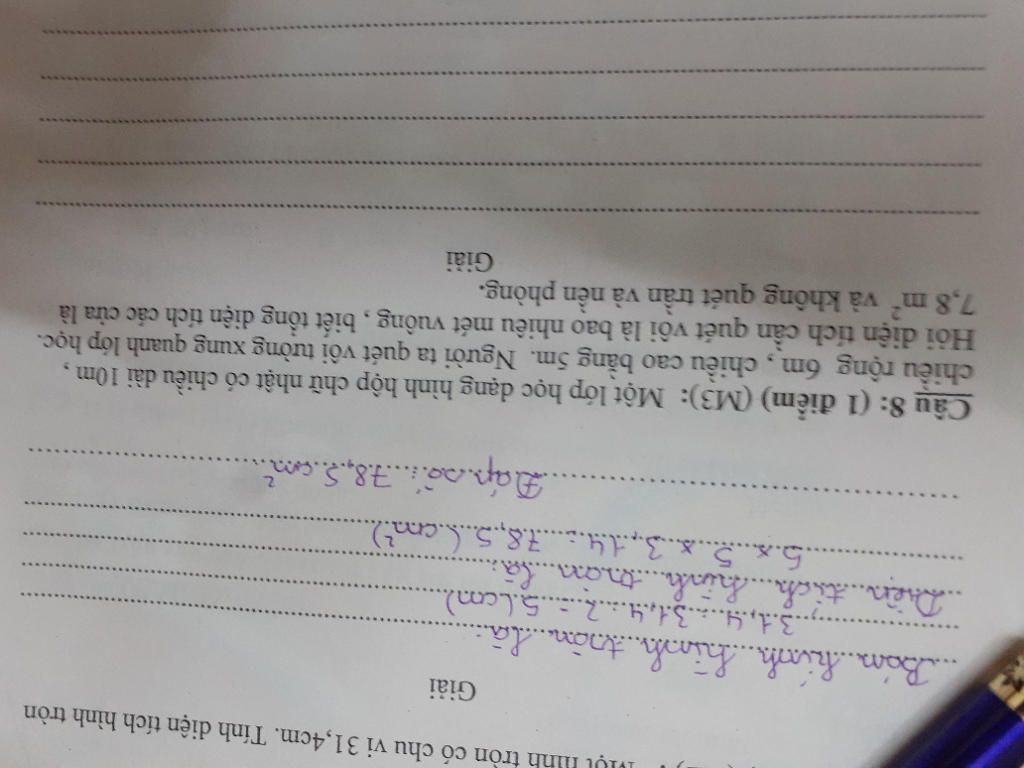 Một hình tròn có chu vi 31,4cm. Tính diện tích hình tròn
Giải
Bán kính hình tròn là:
31,4 : 31,4 : 2 = 5 (cm)
Diện tích hình tròn là:
5 x 5 x 3,14 = 78,5 (cm²)
Đáp số: 78,5 cm²
Câu 8: (1 điểm) (M3): Một lớp học dạng hình hộp chữ nhật có chiều dài 10m ,
chiều rộng 6m , chiều cao bằng 5m. Người ta quét vôi tường xung quanh lớp học.
Hỏi diện tích cần quét vôi là bao nhiêu mét vuông , biết tổng diện tích các cửa là
7,8 m² và không quét trần và nền phòng.
Giải